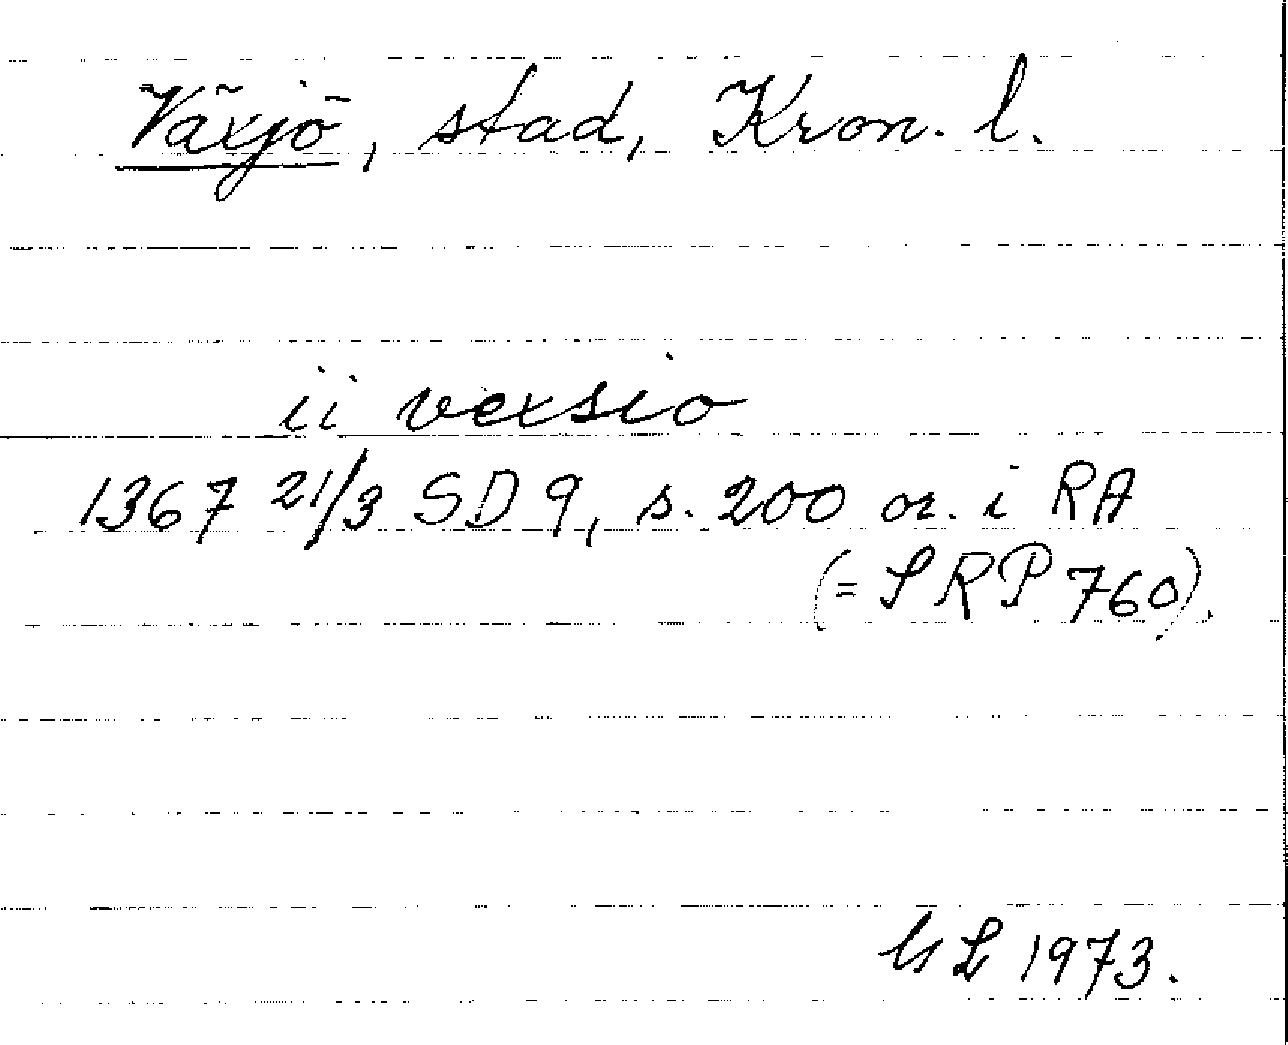 Växjö, stad, Kron. l.
ii vexsio
1367 21/3 SD 9, s. 200 or. i RA
(= SRP 760).
1973.